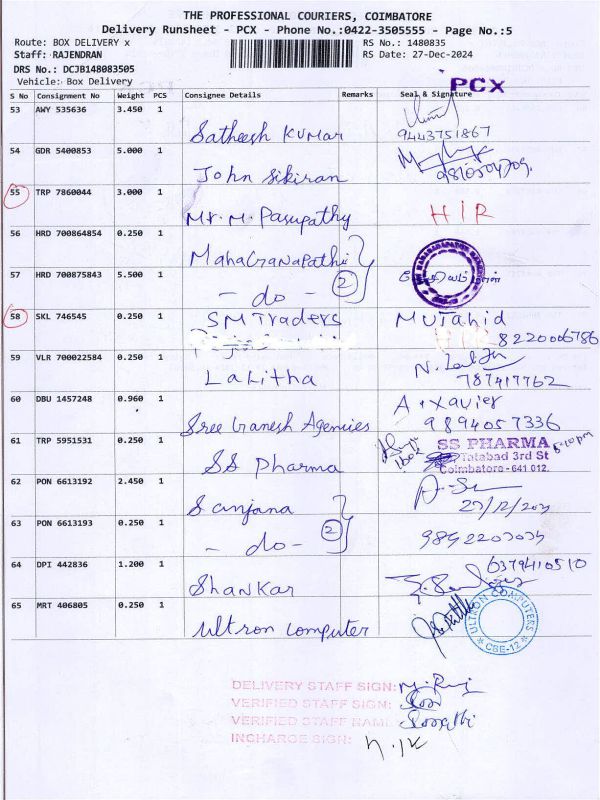 THE PROFESSIONAL COURIERS, COIMBATORE
Delivery Runsheet - PCX - Phone No.:0422-3505555 - Page No.:5
Route: BOX DELIVERY x RS No.: 1480835
Staff: RAJENDRAN RS Date: 27-Dec-2024
DRS No.: DCJB148083505
Vehicle: Box Delivery
PCX
S No Consignment No Weight PCS Consignee Details Remarks Seal & Signature
53 AWY 535636 3.450 1 Satheesh Kumar 9443751867
54 GDR 5400853 5.000 1 John Sikiran
55 TRP 7860044 3.000 1 Mr. M. Pasupathy HIR
56 HRD 700864854 0.250 1 MahaGanapathi
57 HRD 700875843 5.500 1 - do - 2
58 SKL 746545 0.250 1 SM Traders Mutahid
8220006786
59 VLR 700022584 0.250 1 Lalitha 787417762
60 DBU 1457248 0.960 1 Sree Ganesh Agencies A. Xavier
9894057336
61 TRP 5951531 0.250 1 SS Pharma SS PHARMA
Tatabad 3rd St
Coimbatore - 641 012.
62 PON 6613192 2.450 1 Sanjana
63 PON 6613193 0.250 1 - do - 2
64 DPI 442836 1.200 1 Shankar 6379410510
65 MRT 406805 0.250 1 Ultron Computer ULTRON COMPUTERS
CBE-12
DELIVERY STAFF SIGN:
VERIFIED STAFF SIGN:
VERIFIED STAFF NAME
INCHARGE SIGN: